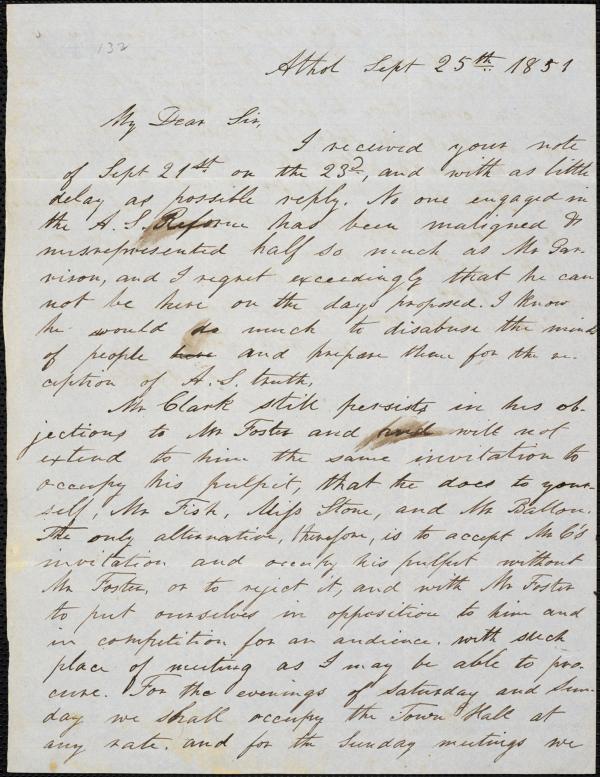 132
Athol Sept 25th 1851
My Dear Sir,
I received your note
of Sept 21st on the 23d, and with as little
delay as possible reply. No one engaged in
the A. S. Reform has been maligned &
misrepresented half so much as Mr Gar-
rison, and I regret exceedingly that he can
not be here on the days proposed. I know
he would do much to disabuse the minds
of people here and prepare them for the re-
ception of A. S. truth.
Mr Clark still persists in his ob-
jections to Mr Foster and will not
extend to him the same invitation to
occupy his pulpit, that he does to your-
self, Mr Fish, Miss Stone, and Mr Ballou.
The only alternative, therefore, is to accept Mr C's
invitation and occupy his pulpit without
Mr Foster, or to reject it, and with Mr Foster
to put ourselves in opposition to him and
in competition for an audience. with such
place of meeting as I may be able to pro-
cure. For the evenings of Saturday and Sun-
day we shall occupy the Town Hall at
any rate. and for the Sunday meetings we